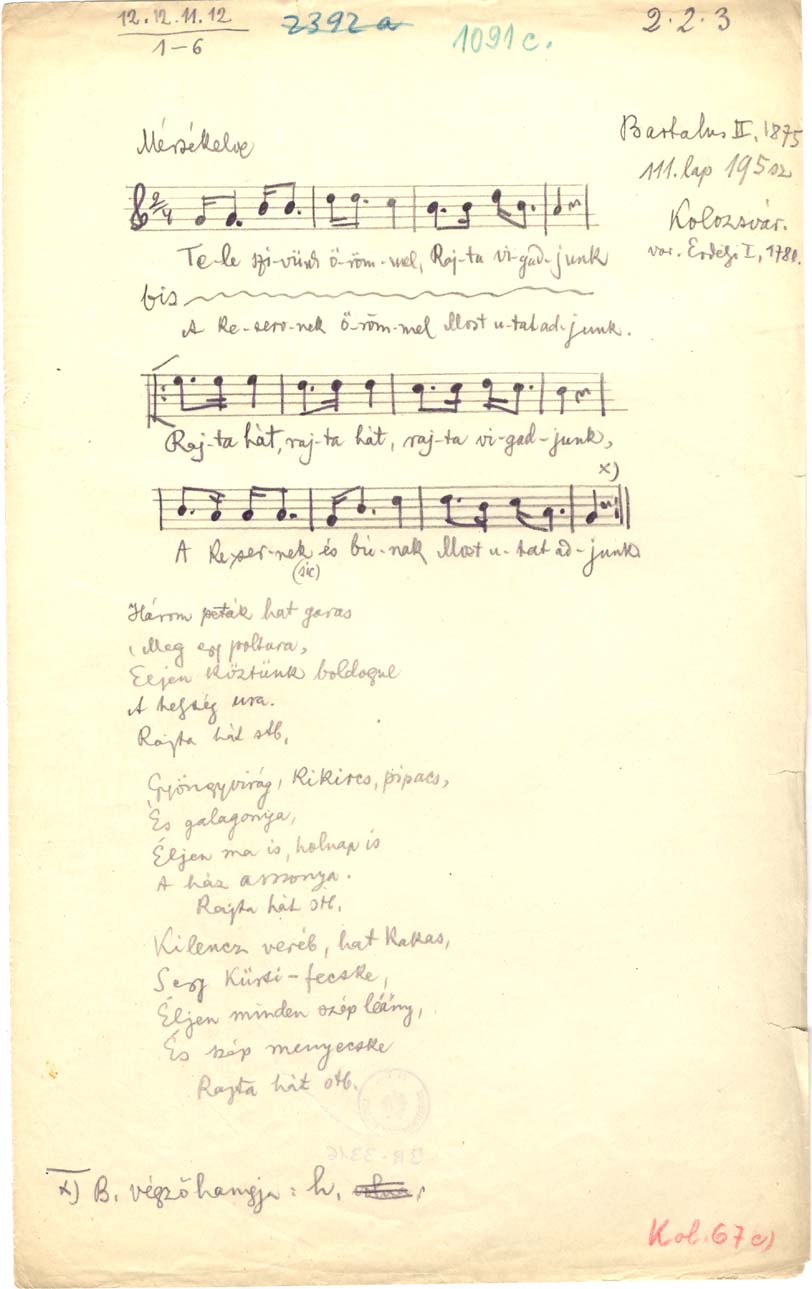 12. 12. 11. 12
1–6
2392 a
1091 c.
2. 2. 3
Bartalus II, 1875
111. lap 195 sz
Kolozsvár.
var. Erdélyi I, 178l.
Mérsékelve
2/4
Te-le szi-vünk ö-röm-mel, Raj-ta vi-gad-junk
bis
A ke-serv-nek ö-röm-mel Most u-tat ad-junk.
Raj-ta hát, raj-ta hát, raj-ta vi-gad-junk,
x)
A ke-ser-nek és bú-nak Most u-tat ad-junk
(sic)
Három peták hat garas
Meg egy poltura,
Éljen köztünk boldogul
A helység ura.
Rajta hát stb.
Gyöngyvirág, kikircs, pipacs,
És galagonya,
Éljen ma is, holnap is
A ház asszonya.
Rajta hát stb.
Kilencz veréb, hat kakas,
S egy Kürti-fecske,
Éljen minden szép léány,
És szép menyecske
Rajta hát stb.
x) B. végzőhangja: h,
Kol. 67 c)